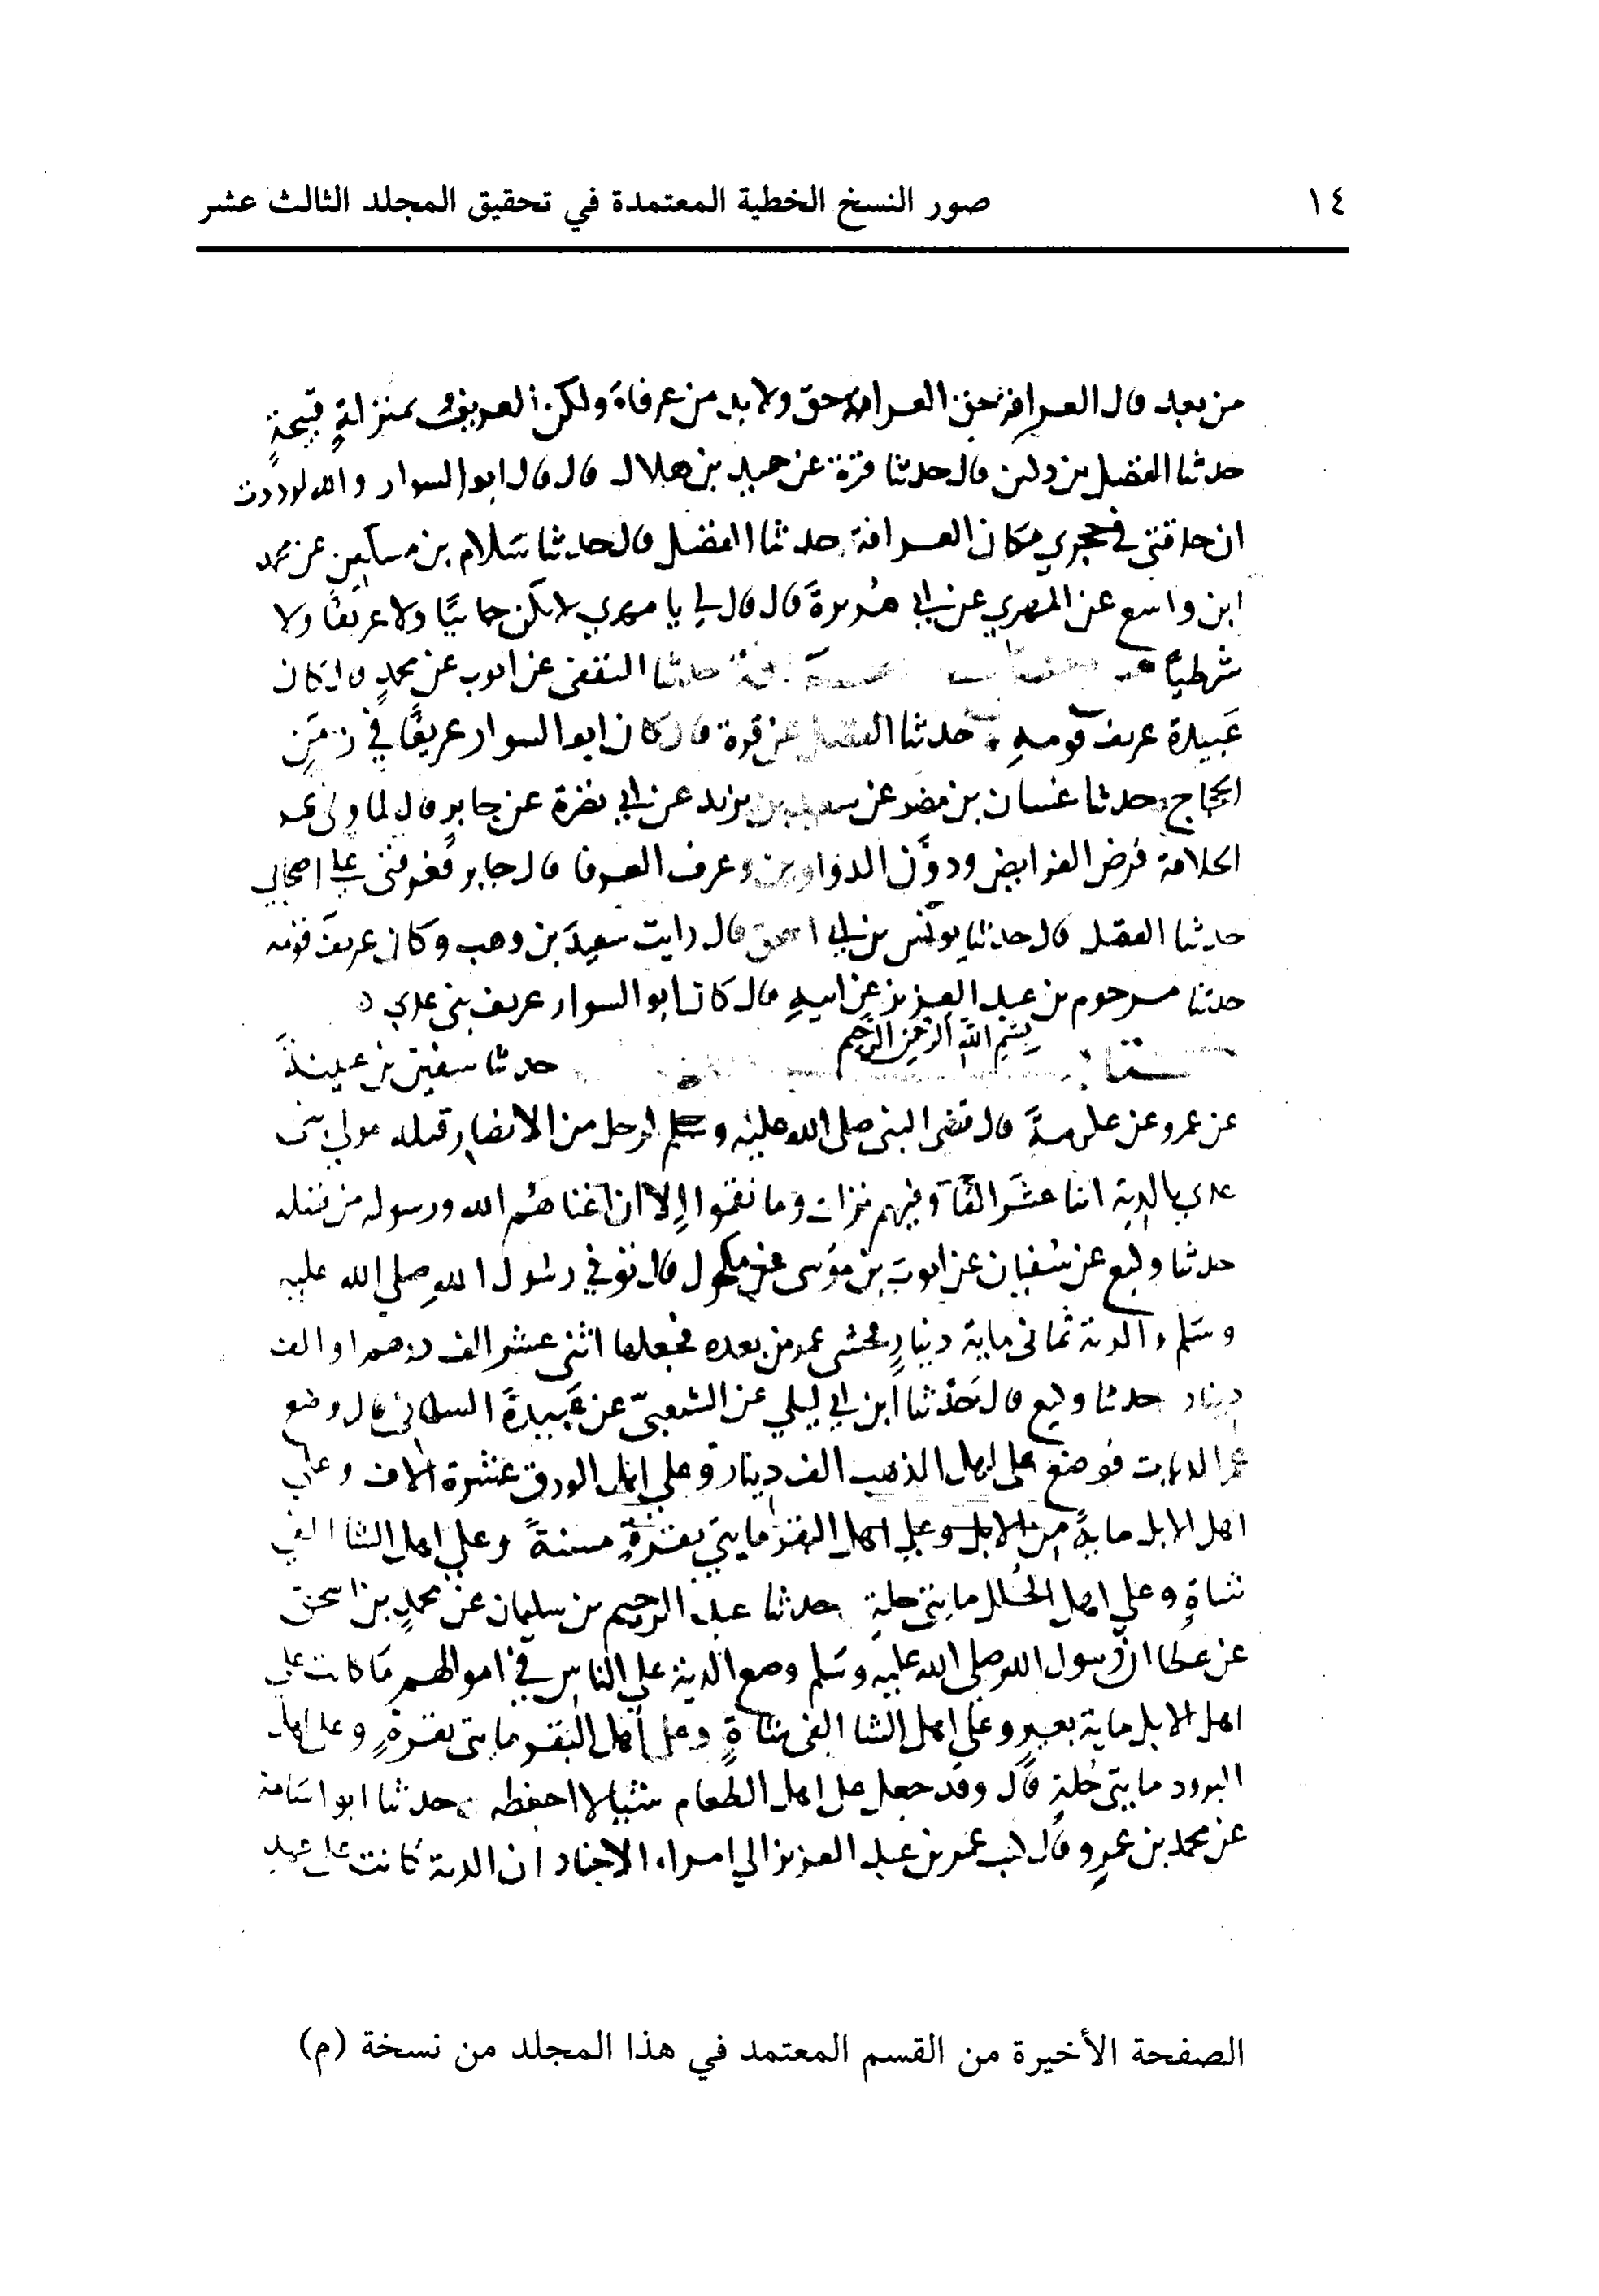 ١٤ صور النسخ الخطية المعتمدة في تحقيق المجلد الثالث عشر
من بعد قال العرافة حق العرافة حق ولا بد من عرفاء ولكن العريف بمنزلةٍ قبيحةٍ
حدثنا الفضل بن دكين قال حدثنا قرة عن حميد بن هلال قال قال ابو السوار والله لوددت
ان حدقتي في حجري مكان العرافة حدثنا الفضل قال حدثنا سَلام بن مسكين عن محمد
ابن واسع عن المهري عن ابي هُريرةَ قال قال لي يا مهري لا تكن جابيًا ولا عريفًا ولا
شرطيًا حدثنا الثقفي عن ايوب عن محمدٍ قال كان
عَبيدة عريف قومهِ حدثنا الفضل عن قرة قال كان ابو السوار عريفًا في زمَنِ
الحجاج حدثنا غسان بن مضر عن سعيد بن يزيد عن ابي نضرة عن جابرٍ قال لما ولى عمر
الخلافة فرض الفرايض ودوَّن الدواوين وعرف العرفا قال جابر فعرفني على اصحابي
حدثنا الفضل قال حدثنا يونس بن ابي اسحق قال رايت سعيدَ بن وهب وكان عريفَ قومه
حدثنا مرحوم بن عبد العزيز عن ابيهِ قال كان ابو السوار عريف بني عدي ه
بسم الله الرحمن الرحيم
حدثنا سفين بن عيينةَ
عن عمرو عن عكرمةَ قال قضى النبي صلى الله عليه وسلم لرجل من الانصار قتله مولى بني
عدي بالدية اثنا عشَر الفًا وفيهم نزلت وما نقموا إلا ان اغناهُم الله ورسوله من فضله
حدثنا وكيع عن سُفيان عن ايوب بن موسى عن مكحول قال توفي رسُول اللهِ صلي الله عليه
وسَلم والدية ثماني ماية دينارٍ فخشى عمر من بعده فجعلها اثنى عشر الف درهم او الف
دينار حدثنا وكيع قال حَدثنا ابن ابي ليلي عن الشعبيّ عن عَبِيدةَ السلماني قال وضع
عمر الديات فوضع على اهل الذهب الف دينار وعلي اهل الورق عشرة الاف وعلي
اهل الابل مايةً من الابل وعلي اهل البقر مايتي بقرةٍ مسنةً وعلي اهل الشا الفي
شاةٍ وعلي اهل الحُلل مايتي حلةٍ حدثنا عبد الرحيم بن سليمان عن محمدٍ بن اسحق
عن عطا ان رسول الله صلي الله عليه وسَلم وضع الدية علي الناس في اموالهم مَا كانت علي
اهل الابل ماية بعيرٍ وعلي اهل الشا الفي شاةٍ وعلى اهل البقر مايتي بقرةٍ وعلي اهل
البرود مايتي حُلةٍ قال وقد جعل على اهل الطعام شيئا لا احفظه حدثنا ابو اسَامة
عن محمد بن عمرٍو قال كتب عمر بن عبد العزيز الي امراء الاجناد ان الدية كانت على عهد
الصفحة الأخيرة من القسم المعتمد في هذا المجلد من نسخة (م)